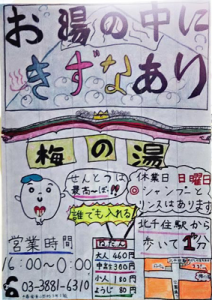 お湯の中に
きずなあり
梅の湯
せんとうは
最高ーば!!
休業日 日曜日
シャンプーと
リンスはあります
誰でも入れる
北千住駅から
歩いて1分
営業時間
大人 460円
中人 300円
小人 180円
ようじ 80円
03-3881-6310